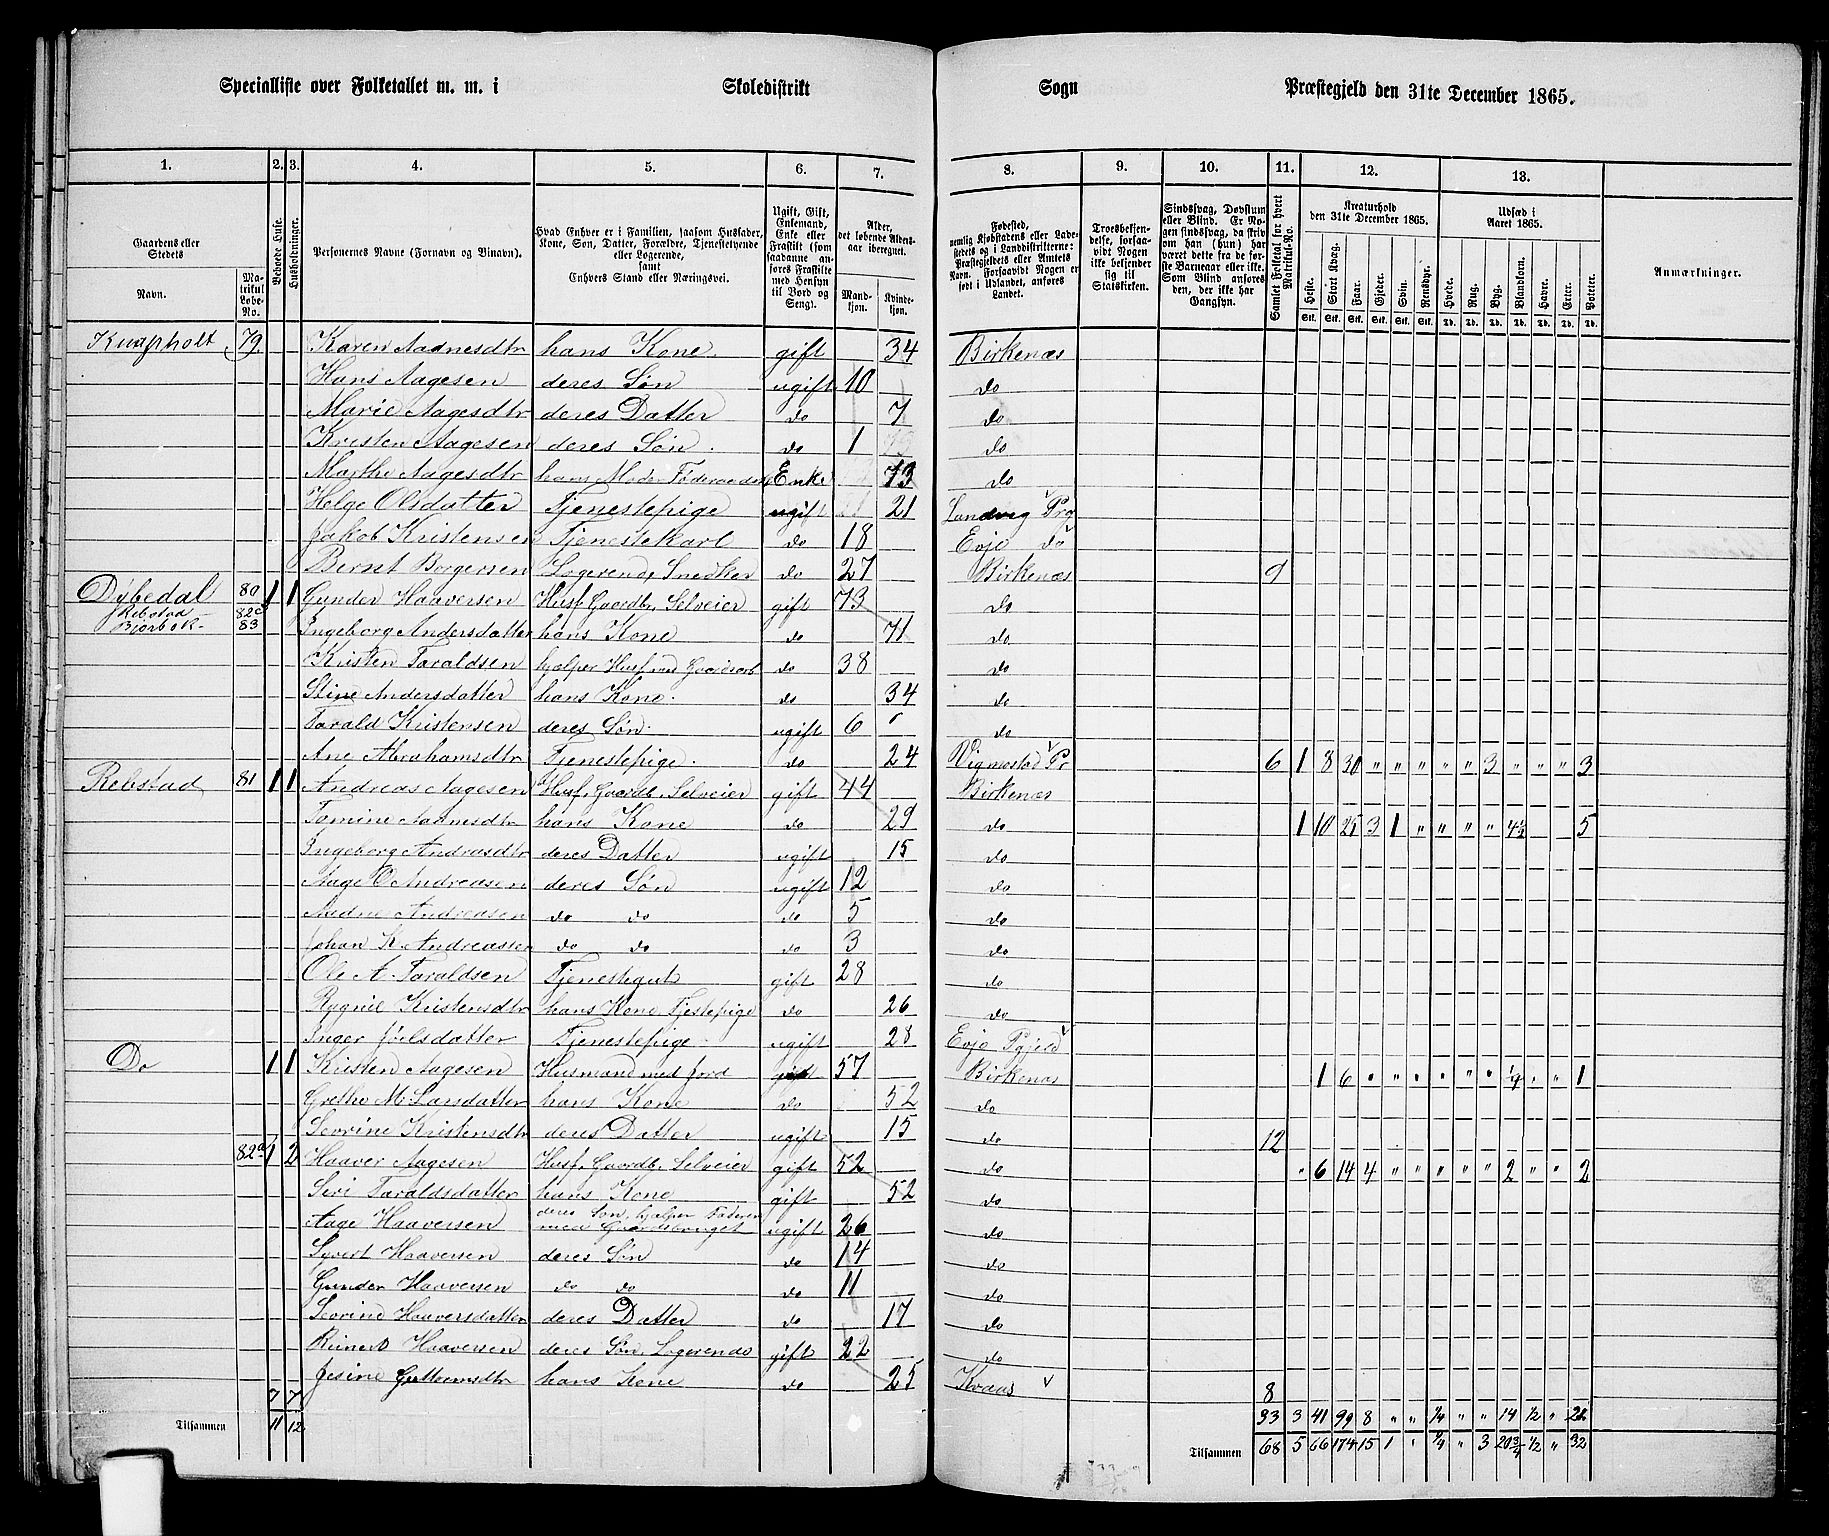 Specialliste over Folketallet m. m. i Skoledistrikt Sogn Præstegjeld den 31te December 1865.
1. 2. 3. 4. 5. 6. 7. 8. 9. 10. 11. 12. 13.
Gaardens eller Stedets Navn. Matrikul Løbe-No. Beboede Huse. Husholdninger. Personernes Navne (Fornavn og Vinavn). Hvad Enhver er i Familien, saasom Husfader, Kone, Søn, Datter, Forældre, Tjenestetyende eller Logerende, samt Enhvers Stand eller Næringsvei. Ugift, Gift, Enkemand, Enke eller Fraskilt (som saadanne anføres Fraskilte med Hensyn til Bord og Seng). Alder, det løbende Aldersaar iberegnet. Mandkjøn. Kvindekjøn. Fødested, nemlig Kjøbstadens eller Ladestedets og i Landdistrikterne: Præstegjeldets eller Amtets Navn. Forsaavidt Nogen er født i Udlandet, anføres Landet. Troesbekjendelse, forsaavidt Nogen ikke bekjender sig til Statskirken. Sindssvag, Døvstum eller Blind. Er Nogen sindssvag, da skriv om han (hun) har været dette fra de første Barneaar eller ikke. Som Blind anføres den, der ikke har Gangsyn. Samlet Folketal for hvert Matrikul-No. Kreaturhold den 31te December 1865. Udsæd i Aaret 1865. Anmærkninger.
Heste. Stort Kvæg. Faar. Gjeder. Svin. Rensdyr. Hvede. Rug. Byg. Blandkorn. Havre. Erter. Poteter.
Stk. Stk. Stk. Stk. Stk. Stk. Td. Td. Td. Td. Td. Td. Td.
Knapholt 79. Karen Aadnesdtr hans Kone. gift 34 Birkenæs
Hans Aagesen deres Søn ugift 10 do
Marie Aagesdtr deres Datter do 7 do
Kristen Aagesen deres Søn. do 1 do
Marthe Aagesdtr hans Moder Enke 73 do
Helge Olsdatter Tjenestepige ugift 21 Landvig Prg
Jakob Kristensen Tjenestekarl do 18 Evje do
Bernt Borgersen Logerende, Snedker do 27 Birkenæs 9
Dybedal 80 1 1 Gunder Haaversen Husf. Gaardb. Selveier gift 73 do
Rebstad 82c
83 Ingeborg Andersdatter hans Kone do 71 do
Kristen Taraldsen hjælper Husf. do 38 do
Stine Andersdatter hans Kone. do 34 do
Tarald Kristensen deres Søn. ugift 6 do
Ane Abrahamsdtr Tjenestepige. do 24 Vigmostad Pr 6 1 8 30 " " " " " 3 " " " 3
Rebstad 81 1 1 Andreas Aagesen Husf. Gaardb. Selveier gift 44 Birkenæs
Tomine Aadnesdtr hans Kone do 29 do 1 10 25 3 1 " " " " 4½ 5
Ingeborg Andrasdtr deres Datter ugift 15 do
Aage O Andreasen deres Søn ugift 12 do
Aadne Andreasen do do do 5 do
Johan K. Andreassen do do do 3 do
Ole A. Taraldsen Tjenestegut gift 28 do
Rygnil Kristensdtr hans Kone Tjestepige do 26 do
Inger Joelsdatter Tjenestepige ugift 28 Evje Pgjeld
Do 1 1 Kristen Aagesen Husmand med Jord gift 57 Birkenæs 1 6 " " " " " " 1
Grethe M. Larsdatter hans Kone do 52 do
Sevrine Kristensdtr deres Datter ugift 15 do 12
82a 1 2 Haaver Aagesen Husf. Gaardb. Selveier gift 52 do " 6 14 4 " " " " " 2 " " 2
Siri Taraldsdatter hans Kone gift 52 do
Aage Haaversen deres Søn, hjælper Faderen med Gaardsbruget ugift 26 do
Syvert Haaversen deres Søn do 14 do
Gunder Haaversen do do do 11 do
Sevrine Haaversdatter deres Datter do 17 do
Haaversen deres Søn, Logerende gift 22 do
Jesine Guttormsdtr hans Kone do 25 8
7 7 33 3 41 99 8 " " ¼ " " 14 ½ "
Tilsammen 11 12 Tilsammen 68 5 66 174 15 1 " ¼ " 3 20¾ ½ " 32